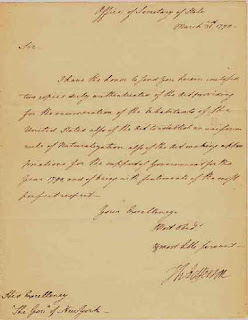 Office of Secretary of State
March 31st 1790.
Sir.
I have the honor to send you herein enclosed
two copies duly authenticated of the Act providing
for the enumeration of the Inhabitants of the
United States also of the Act to establish an uniform
rule of Naturalization also of the Act making appro
priations for the support of Government for the
year 1790 and of being with sentiments of the most
perfect respect
Your Excellency's
Most Obedt
& most hble Servant
Th: Jefferson
His Excellency
The Govr of New York